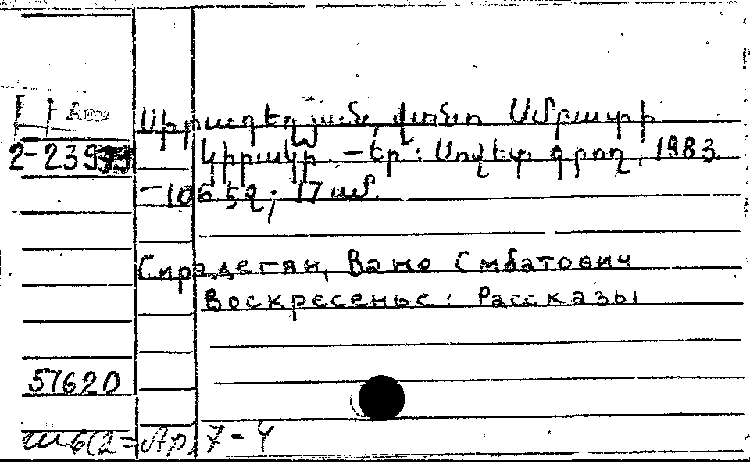 Սիրադեղյան, Վանո Սմբատի
2-23999 Կիրակի. – Եր.: Սովետ. գրող, 1983.
– 106 էջ; 17 սմ.
Сирадегян, Вано Смбатович
Воскресенье: Рассказы
57620